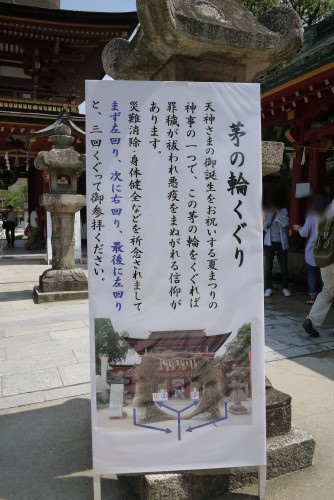 茅の輪くぐり
天神さまの御誕生をお祝いする夏まつりの
神事の一つで、この茅の輪をくぐれば
罪穢が祓われ悪疫をまぬがれる信仰が
あります。
災難消除・身体健全などを祈念されまして
まず左回り、次に右回り、最後に左回り
と、三回くぐって御参拝ください。